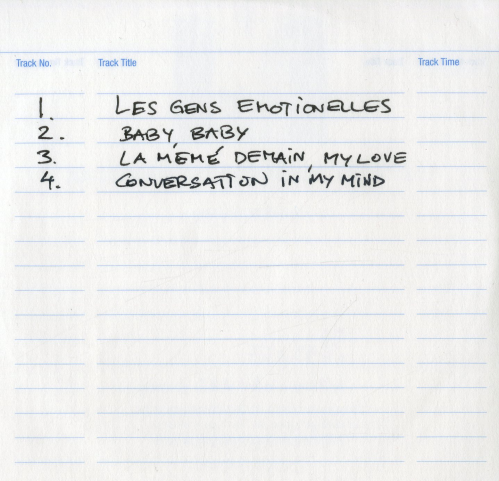 Track No. Track Title Track Time
1. LES GENS EMOTIONELLES
2. BABY, BABY
3. LA MÉMÉ DEMAIN, MY LOVE
4. CONVERSATION IN MY MIND